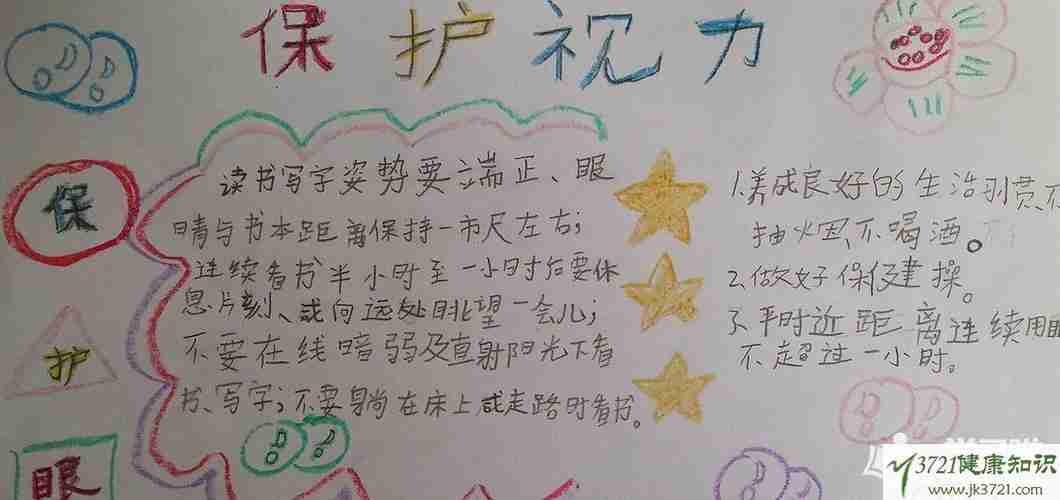 保护视力
保
护
眼
读书写字姿势要端正、眼
睛与书本距离保持一市尺左右;
连续看书半小时至一小时后要休
息片刻、或向远处眺望一会儿;
不要在线暗弱及直射阳光下看
书、写字;不要躺在床上或走路时看书。
1.养成良好的生活习惯,不
抽烟、不喝酒。
2.做好保健操。
3.平时近距离连续用眼
不超过一小时。
3721健康知识
www.jk3721.com